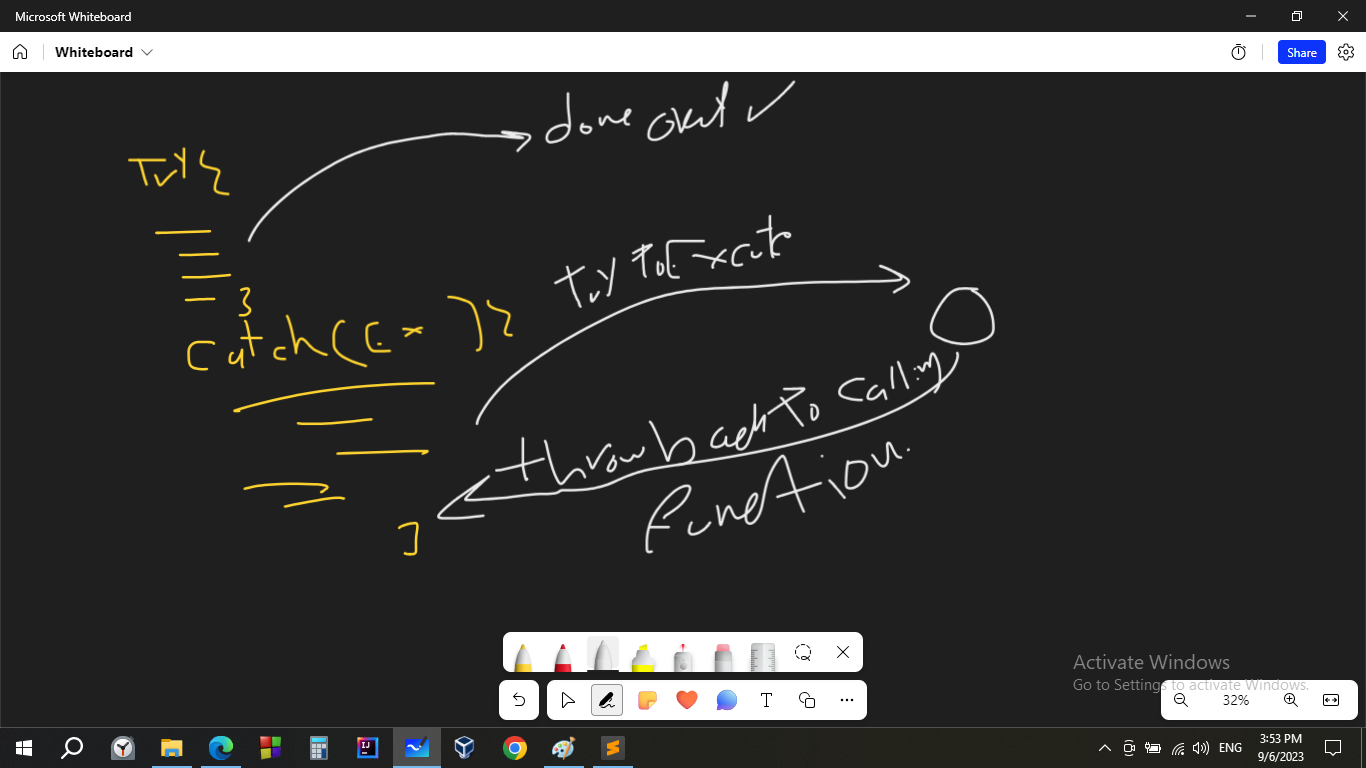 Microsoft Whiteboard
Whiteboard
Share
done
Try{
}
Try to Execute
Catch(Ex ){
throw back to calling
function.
}
Activate Windows
Go to Settings to activate Windows.
32%
ENG
3:53 PM
9/6/2023